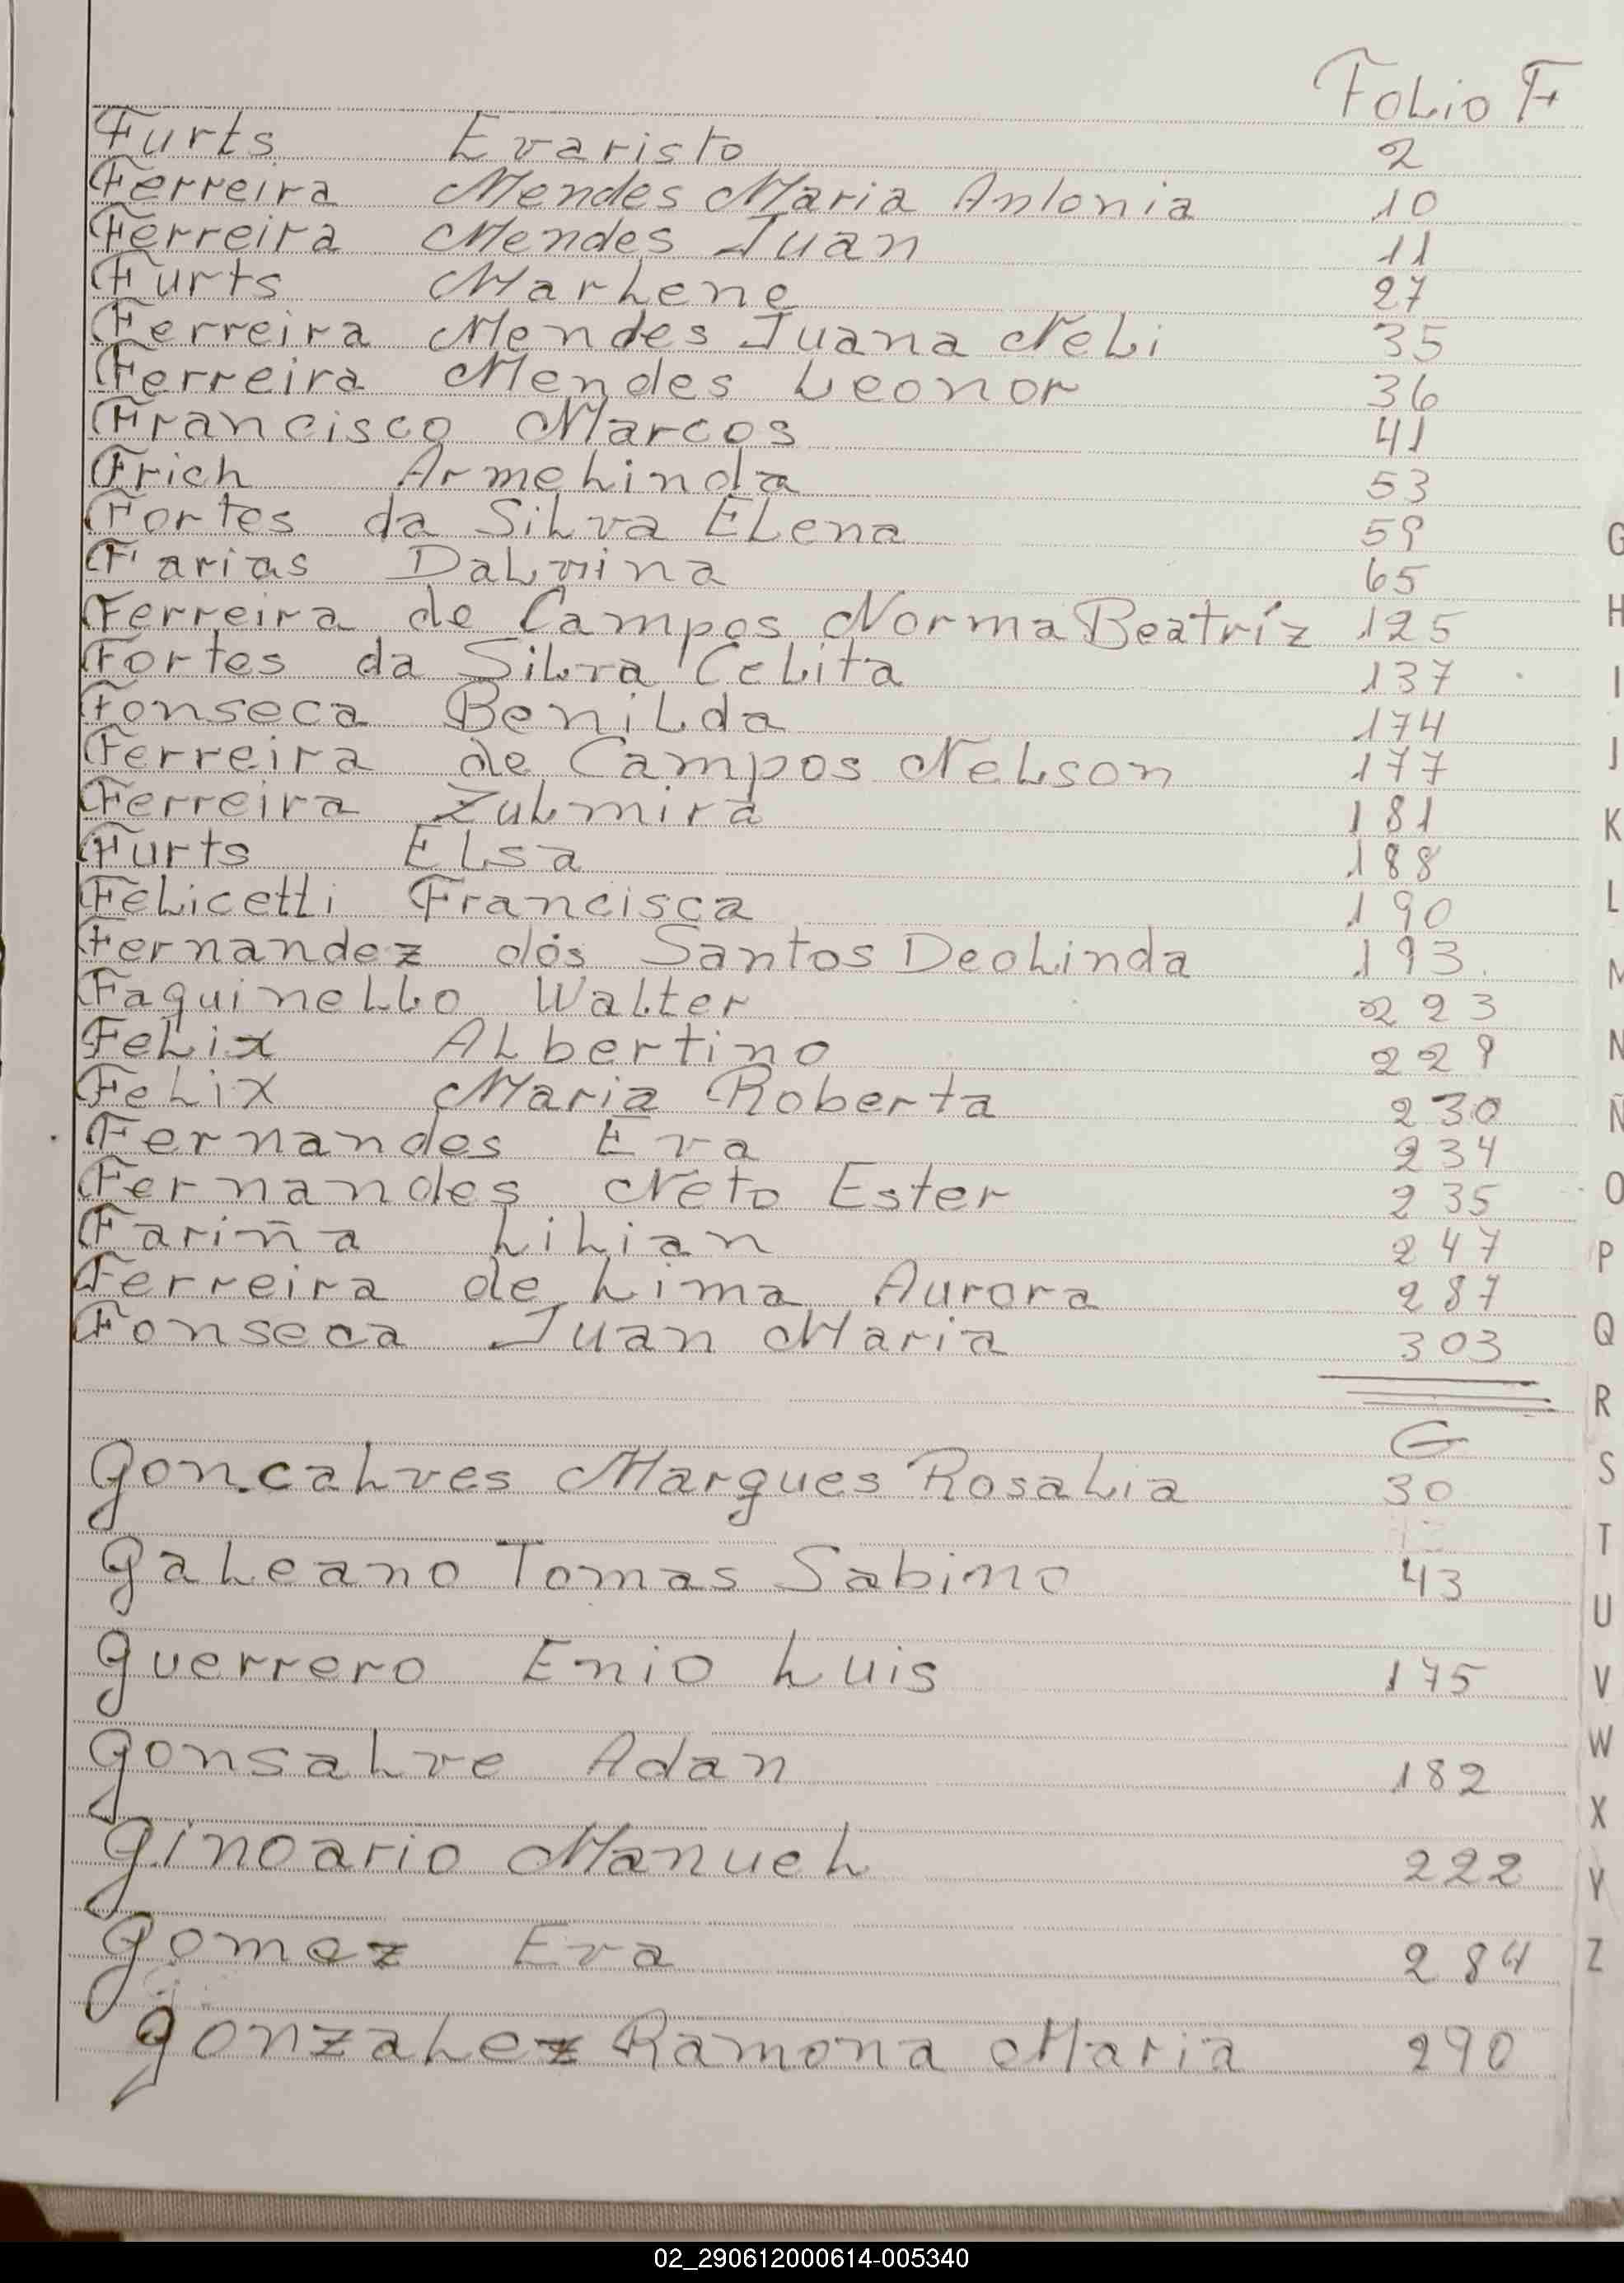 Folio F
Furts Evaristo 2
Ferreira Mendes Maria Antonia 10
Ferreira Mendes Juan 11
Furts Marlene 27
Ferreira Mendes Juana Neli 35
Ferreira Mendes Leonor 36
Francisco Marcos 41
Frich Armelinda 53
Fortes da Silva Elena 59
Farias Dalvina 65
Ferreira de Campos Norma Beatríz 125
Fortes da Silva Celita 137
Fonseca Benilda 174
Ferreira de Campos Nelson 177
Ferreira Zulmira 181
Furts Elsa 188
Felicetti Francisca 190
Fernandez dos Santos Deolinda 193
Faquinello Walter 223
Felix Albertino 229
Felix Maria Roberta 230
Fernandes Eva 234
Fernandes Neto Ester 235
Fariña Lilian 247
Ferreira de Lima Aurora 287
Fonseca Juan Maria 303
G
Goncalves Marques Rosalia 30
Galeano Tomas Sabino 43
Guerrero Enio Luis 175
Gonsalve Adan 182
Ginoario Manuel 222
Gomez Eva 284
Gonzalez Ramona Maria 290
G
H
I
J
K
L
M
N
Ñ
O
P
Q
R
S
T
U
V
W
X
Y
Z
02_290612000614-005340